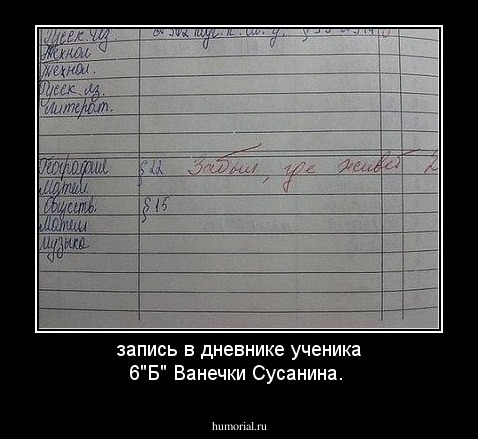 Русск. яз.
Технол
Технол.
Русск. яз.
литерат.
География § 22 Забыл, где живёт 2
Матем.
Обществ. § 15
Матем
Музыка
запись в дневнике ученика
6"Б" Ванечки Сусанина.
humorial.ru